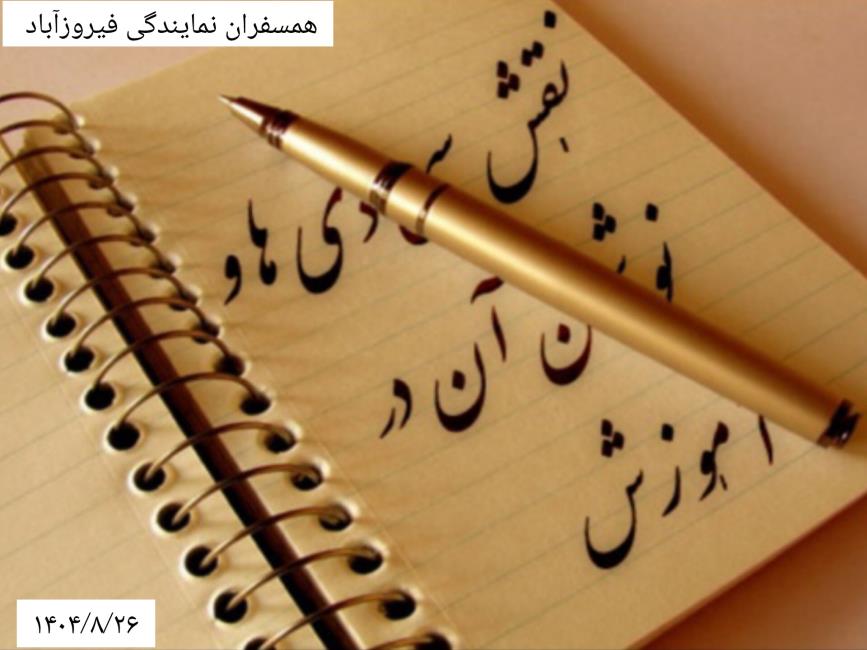 همسفران نمایندگی فیروزآباد
نقش
سی دی ها و
نوشتن آن در
آموزش
۱۴۰۴/۸/۲۶